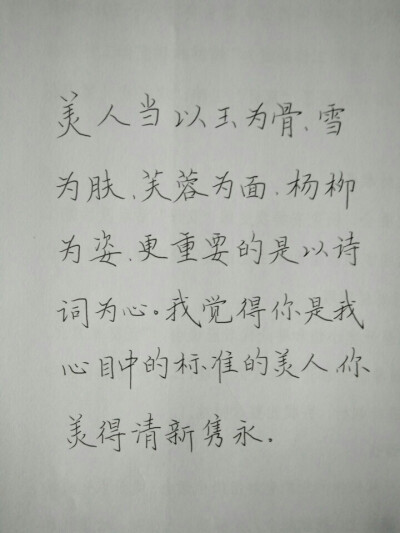 美人当以玉为骨、雪
为肤、芙蓉为面、杨柳
为姿、更重要的是以诗
词为心。我觉得你是我
心目中的标准的美人你
美得清新隽永。